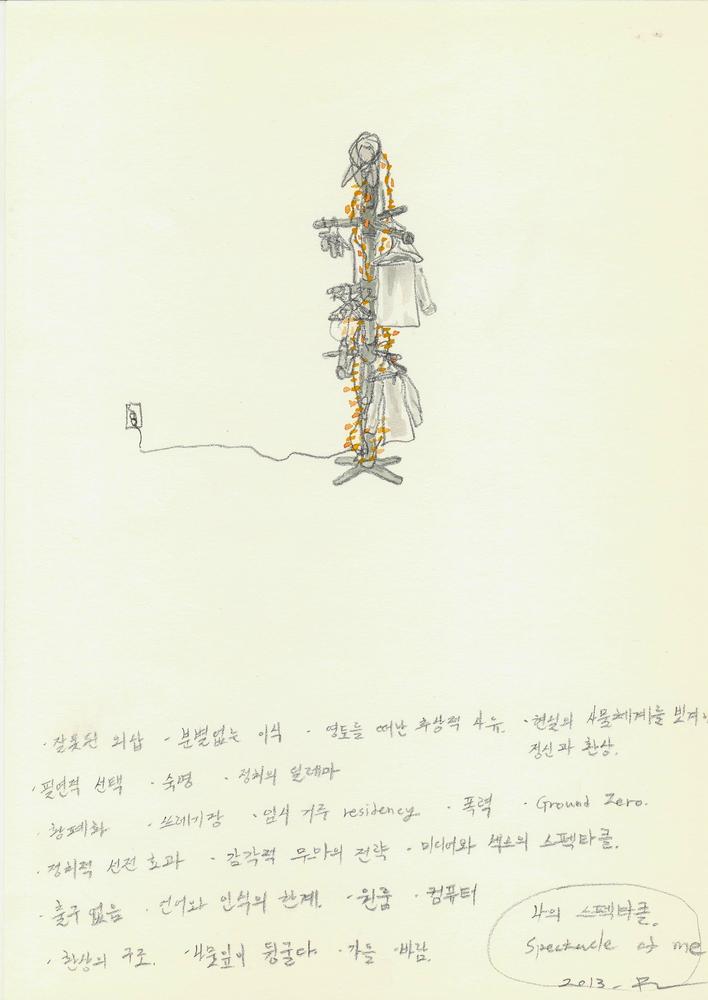 · 잘못된 외삽 · 분별없는 이식 · 영토를 떠난 추상적 사유. · 현실의 사물체계를 빗겨난
정신과 환상.
· 필연적 선택 · 숙명 · 정치의 딜레마
· 황폐화 · 쓰레기장 · 임시 거주 residency. · 폭력 · Ground Zero.
· 정치적 선전 효과 · 감각적 무마의 전략 · 미디어와 섹스의 스펙타클.
· 출구 없음 · 언어와 인식의 한계. · 원룸 · 컴퓨터
· 환상의 구조. · 나뭇잎이 뒹굴다 · 가을 바람.
나의 스펙타클.
Spectacle of me
2013.